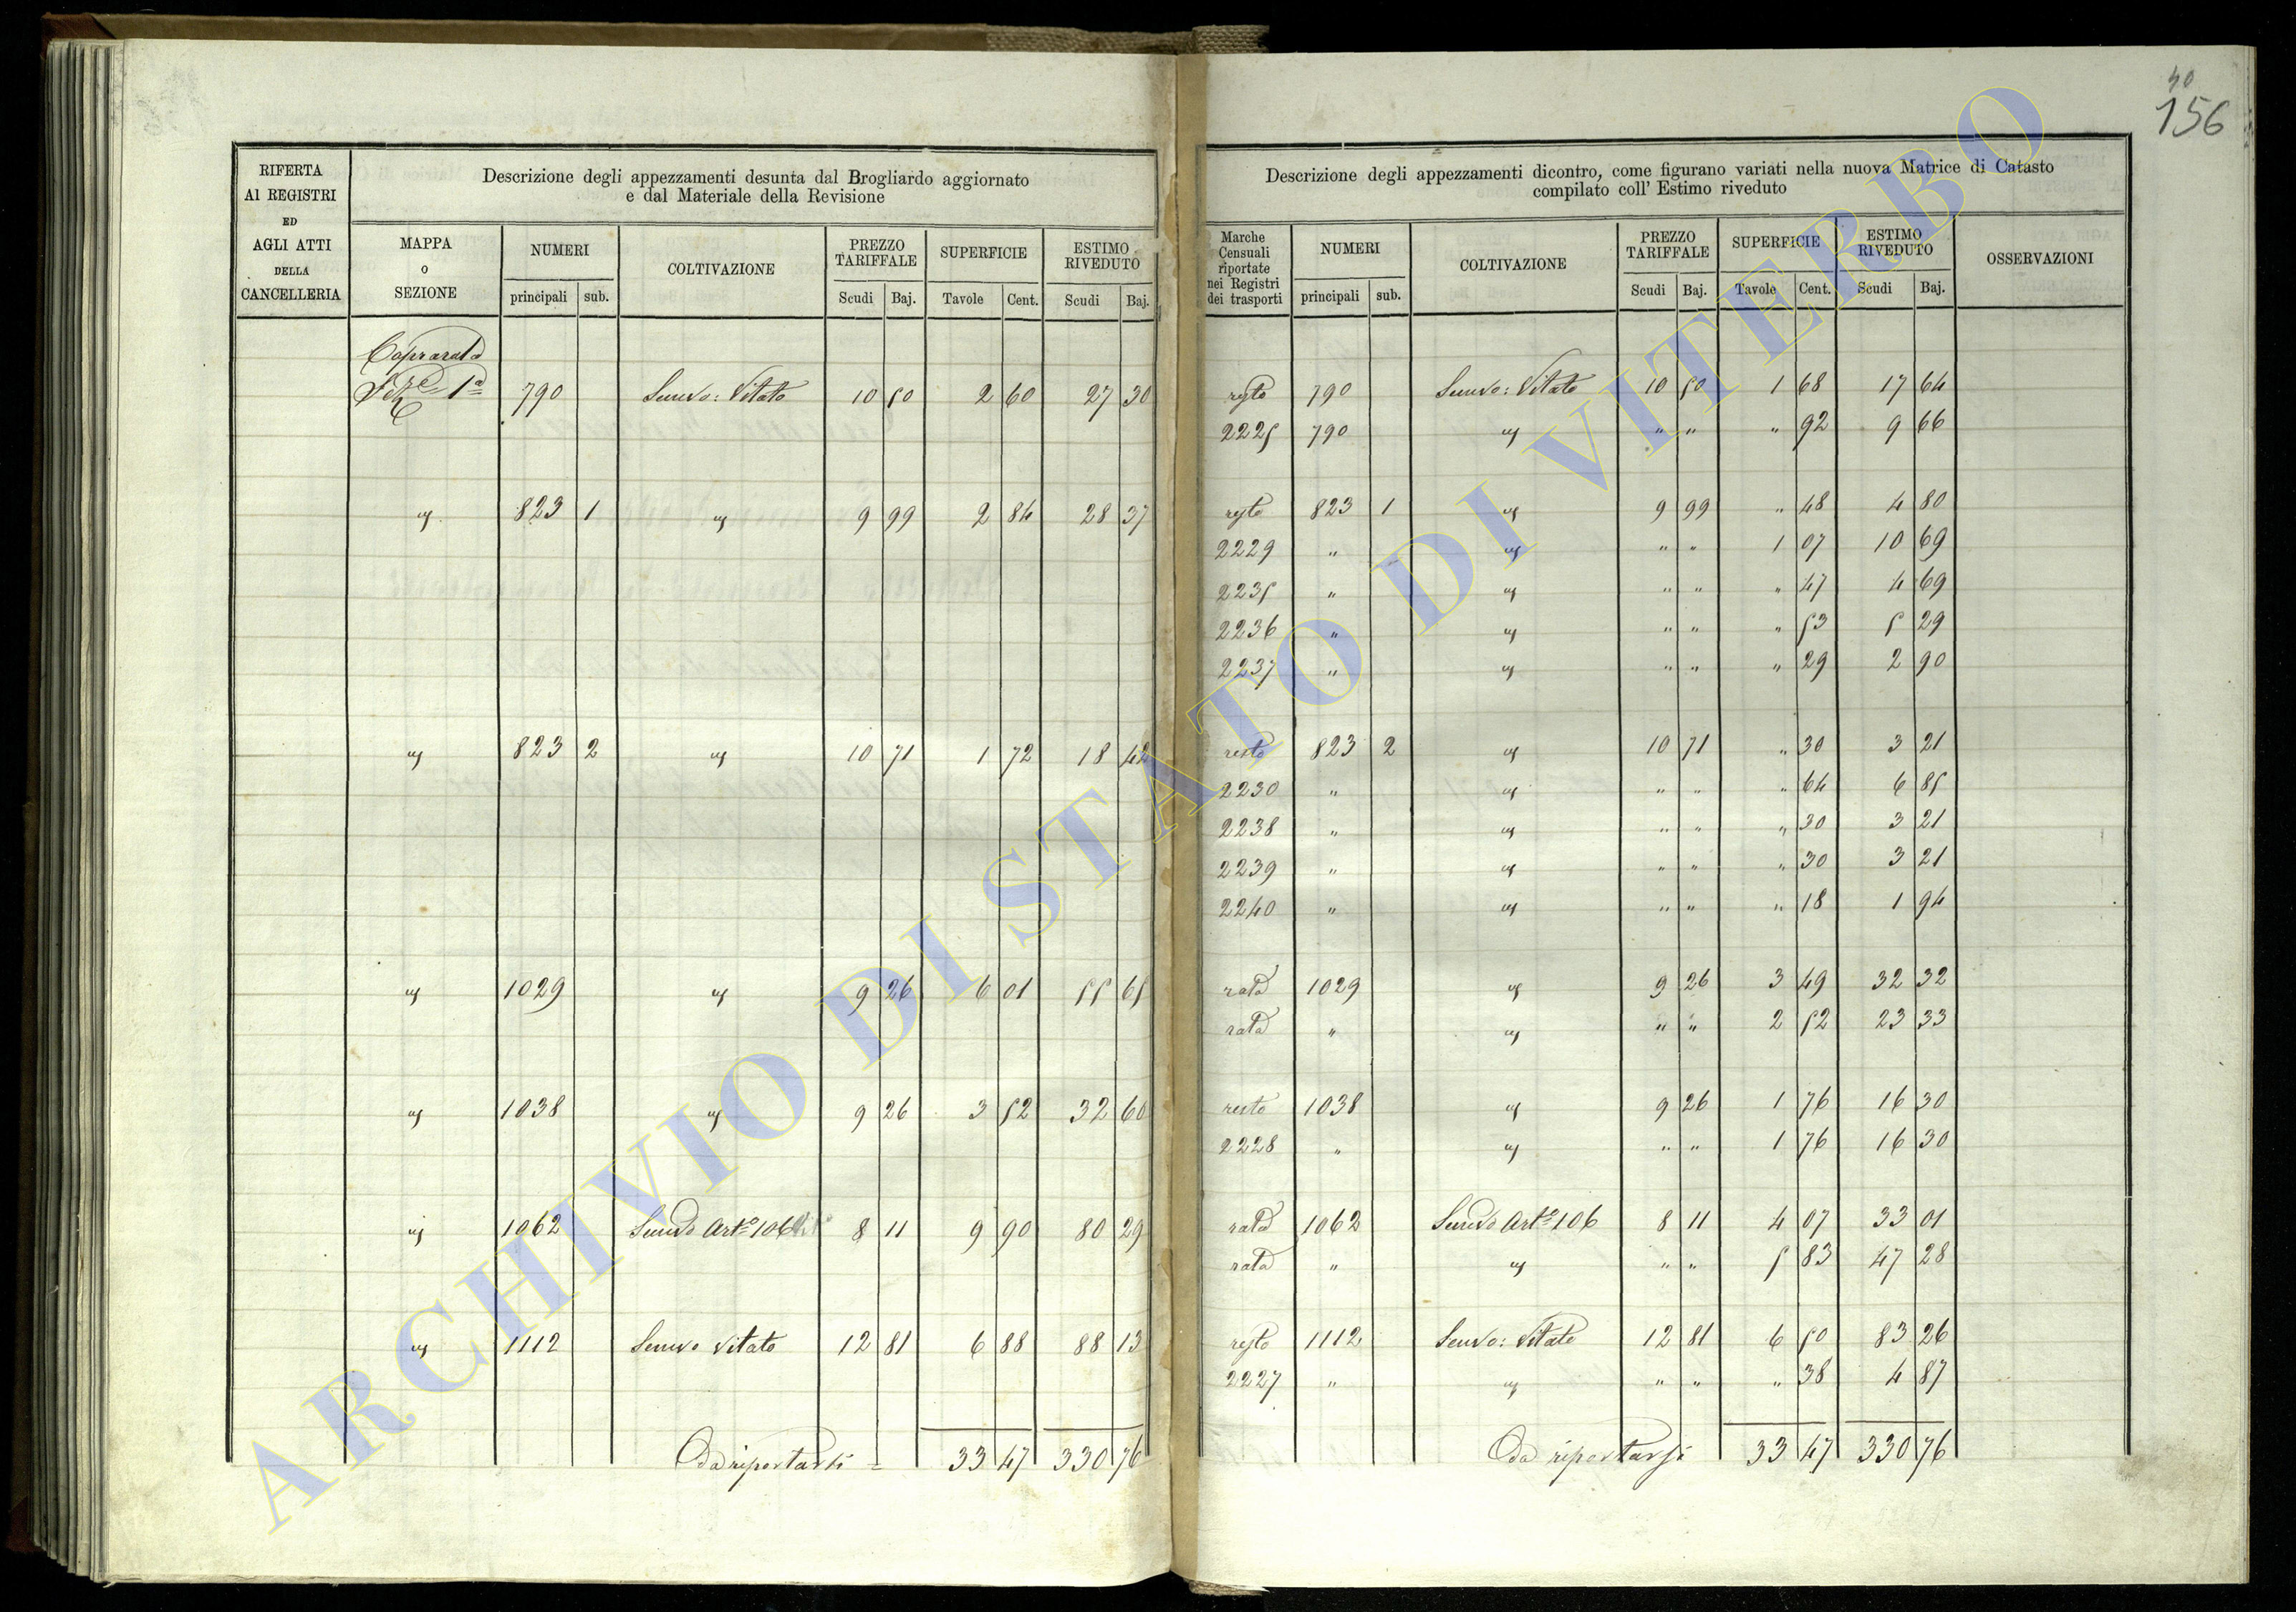 40
156
RIFERTA
AI REGISTRI
ED
AGLI ATTI
DELLA
CANCELLERIA
Descrizione degli appezzamenti desunta dal Brogliardo aggiornato
e dal Materiale della Revisione
MAPPA
o
SEZIONE
NUMERI
principali sub.
COLTIVAZIONE
PREZZO
TARIFFALE
Scudi Baj.
SUPERFICIE
Tavole Cent.
ESTIMO
RIVEDUTO
Scudi Baj.
Caprarola
Sez.e 1a 790 Semvo: Vitato 10 50 2 60 27 30
" 823 1 " 9 99 2 84 28 37
" 823 2 " 10 71 1 72 18 42
" 1029 " 9 26 6 01 55 65
" 1038 " 9 26 3 52 32 60
" 1062 Semvo Arto 106 8 11 9 90 80 29
" 1112 Semvo Vitato 12 81 6 88 88 13
Da riportarsi = 33 47 330 76
Descrizione degli appezzamenti dicontro, come figurano variati nella nuova Matrice di Catasto
compilato coll' Estimo riveduto
Marche
Censuali
riportate
nei Registri
dei trasporti
NUMERI
principali sub.
COLTIVAZIONE
PREZZO
TARIFFALE
Scudi Baj.
SUPERFICIE
Tavole Cent.
ESTIMO
RIVEDUTO
Scudi Baj.
OSSERVAZIONI
resto 790 Semvo: Vitato 10 50 1 68 17 64
2225 790 " " " " 92 9 66
resto 823 1 " 9 99 " 48 4 80
2229 " " " " 1 07 10 69
2235 " " " " " 47 4 69
2236 " " " " " 53 5 29
2237 " " " " " 29 2 90
resto 823 2 " 10 71 " 30 3 21
2230 " " " " " 64 6 85
2238 " " " " " 30 3 21
2239 " " " " " 30 3 21
2240 " " " " " 18 1 94
rata 1029 " 9 26 3 49 32 32
rata " " " " 2 52 23 33
resto 1038 " 9 26 1 76 16 30
2228 " " " " 1 76 16 30
rata 1062 Semvo Arto 106 8 11 4 07 33 01
rata " " " " 5 83 47 28
resto 1112 Semvo: Vitato 12 81 6 50 83 26
2227 " " " " " 38 4 87
Da riportarsi 33 47 330 76
ARCHIVIO DI STATO DI VITERBO